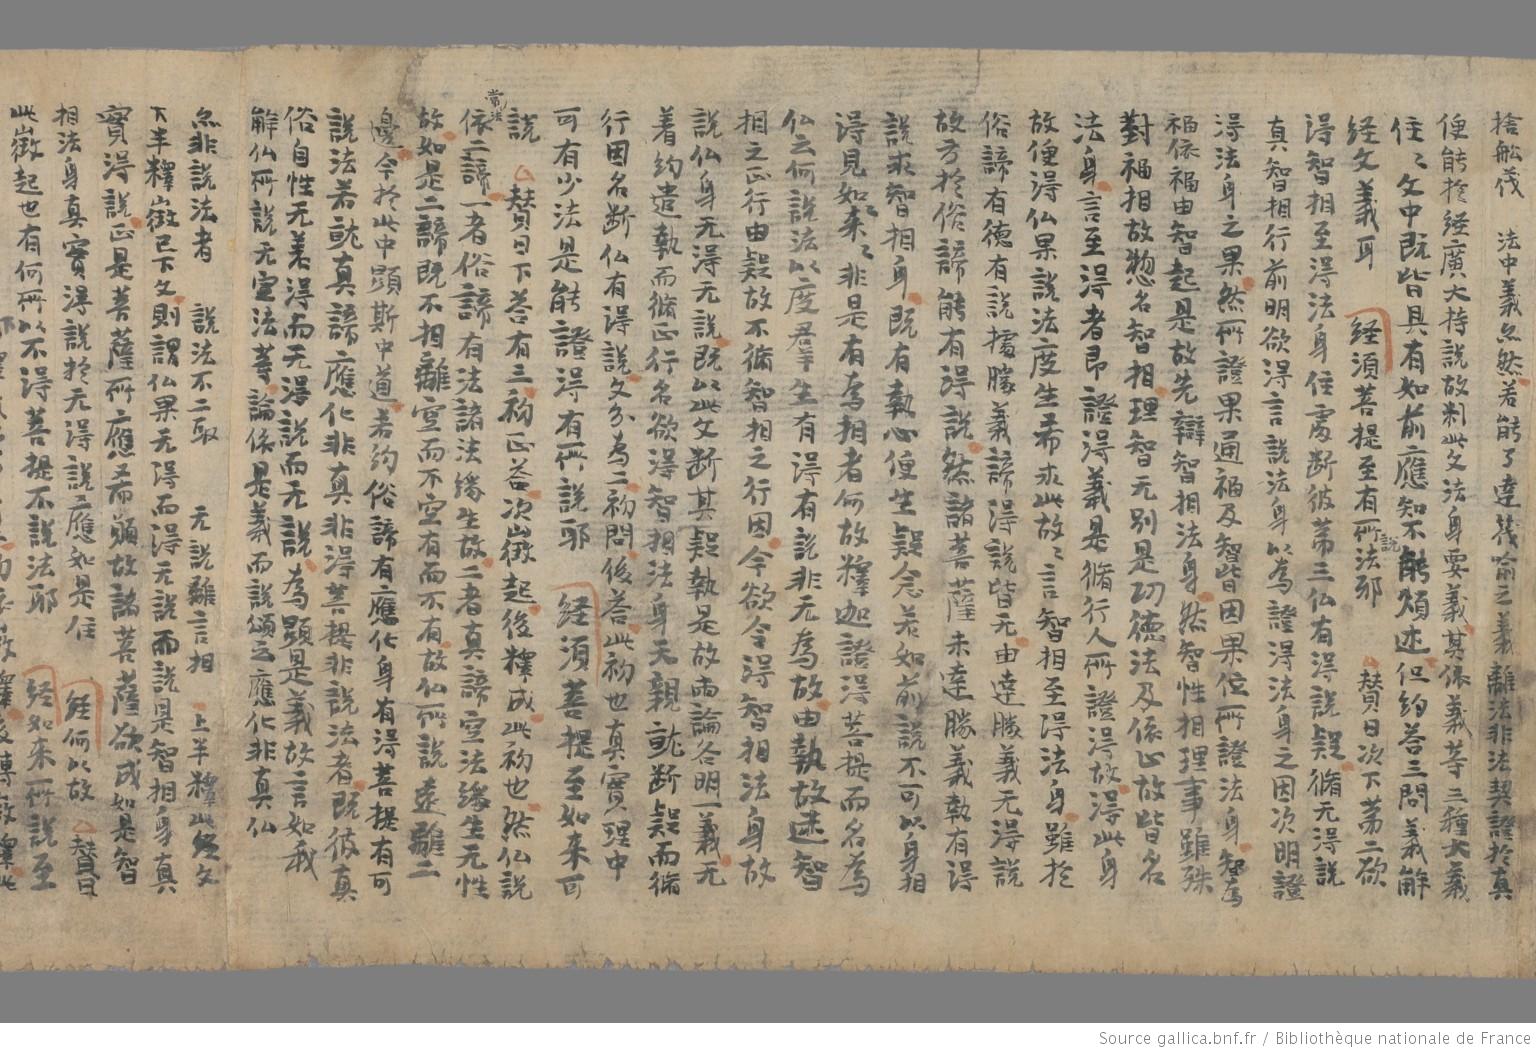 捨舩茷　法中義亦然若能了達茷喻之義離法非法契證於真
便能於経廣大持說故判此文法身要義其依義等三種大義
住〻文中既皆具有如前應知不能煩述但約荅三問義解
経文義耳　経須菩提至有所說法耶　賛曰次下苐二欲
得智相至得法身住處断彼苐三仏有得說疑脩无得說
真智相行前明欲得言說法身以為證得法身之因次明證
得法身之果然所證果通福及智皆因果位所證法身智為
福依福由智起是故先辯智相法身然智性相理事雖殊
對福相故惣名智相理智无別是功德法及依止故皆名
法身言至得者即證得義是脩行人所證得故得此身
故便得仏果說法度生希求此故〻言智相至得法身雖於
俗諦有德有說據勝義諦得說皆无由達勝義无得說
故方於俗諦能有得說然諸菩薩未達勝義執有得
說求智相身既有執心便生疑念若如前說不可以身相
得見如来〻非是有為相者何故釋迦證得菩提而名為
仏云何說法以度羣生有得有說非无為故由執故迷智
相之正行由疑故不脩智相之行因今欲令得智相法身故
說仏身无得无說既以此文断其疑執是故兩論各明一義无
着約遣執而脩正行名欲得智相法身天親就断疑而脩
行因名断仏有得說文分為二初問後荅此初也真實理中
可有少法是能證得有所說耶　経須菩提至如来可
說　賛曰下荅有三初正荅次徵起後釋成此初也然仏說
常法依二諦一者俗諦有法諸法緣生故二者真諦空法緣生无性
故如是二諦既不相離空而不空有而不有故仏所說遠離二
邊今於此中顯斯中道者約俗諦有應化身有得菩提有可
說法若就真諦應化非真非得菩提非說法者既彼真
俗自性无着得而无得說而无說為顯是義故言如我
解仏所說无定法等論依是義而說頌云應化非真仏
亦非說法者　說法不二取　无說離言相　上半釋此経文
下半釋徵已下文則謂仏果无得而得无說而說是智相身真
實得說正是菩薩所應希願故諸菩薩欲成如是智
相法身真實得說於无得說應如是住　経何以故　賛曰
此徵起也有何所以不得菩提不說法耶　経如来所說至